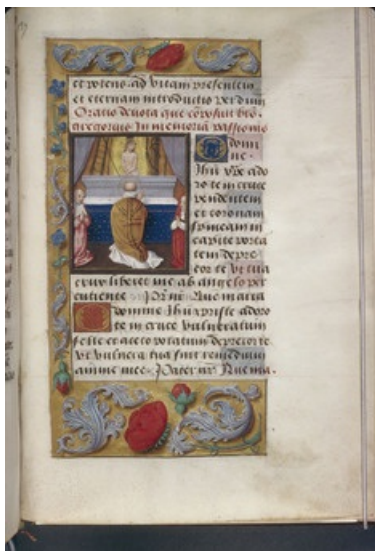 et potens ad vitam presentem
et eternam introductio per dnm
Oratio devota que composuit bts
gregorius In memoriã passionis
O domi
ne
Ihu xpe ado
ro te in cruce
pendentem
et coronam
spineam in
capite porta
tem depre
cor te ut tua
crux liberet me ab angelo per
cutiente Pr nr Aue maria
O domine Ihu xpriste adoro
te in cruce vulneratum
felle et aceto potatum deprecor te
vt vulnera tua sint remedium
anime mee Pater nr Aue ma